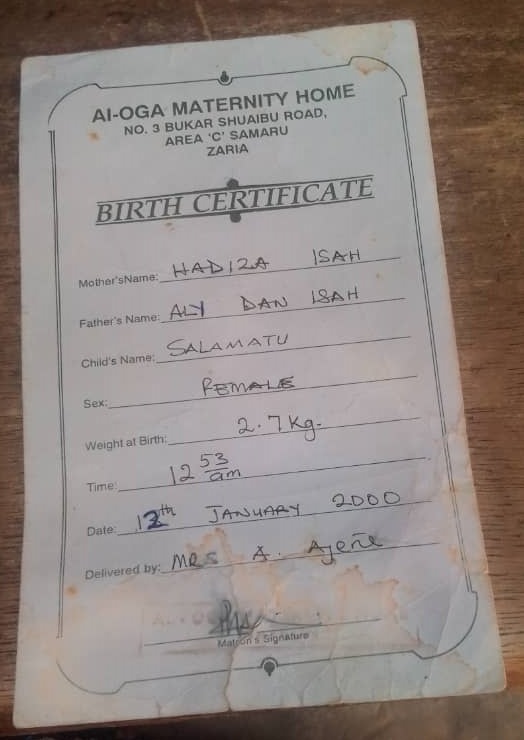 AI-OGA MATERNITY HOME
NO. 3 BUKAR SHUAIBU ROAD,
AREA 'C' SAMARU
ZARIA
BIRTH CERTIFICATE
Mother'sName: HADIZA ISAH
Father's Name: ALY DAN ISAH
Child's Name: SALAMATU
Sex: FEMALE
Weight at Birth: 2.7 Kg.
Time: 12 53 am
Date: 12th JANUARY 2000
Delivered by: MRS A.
Matron's Signature